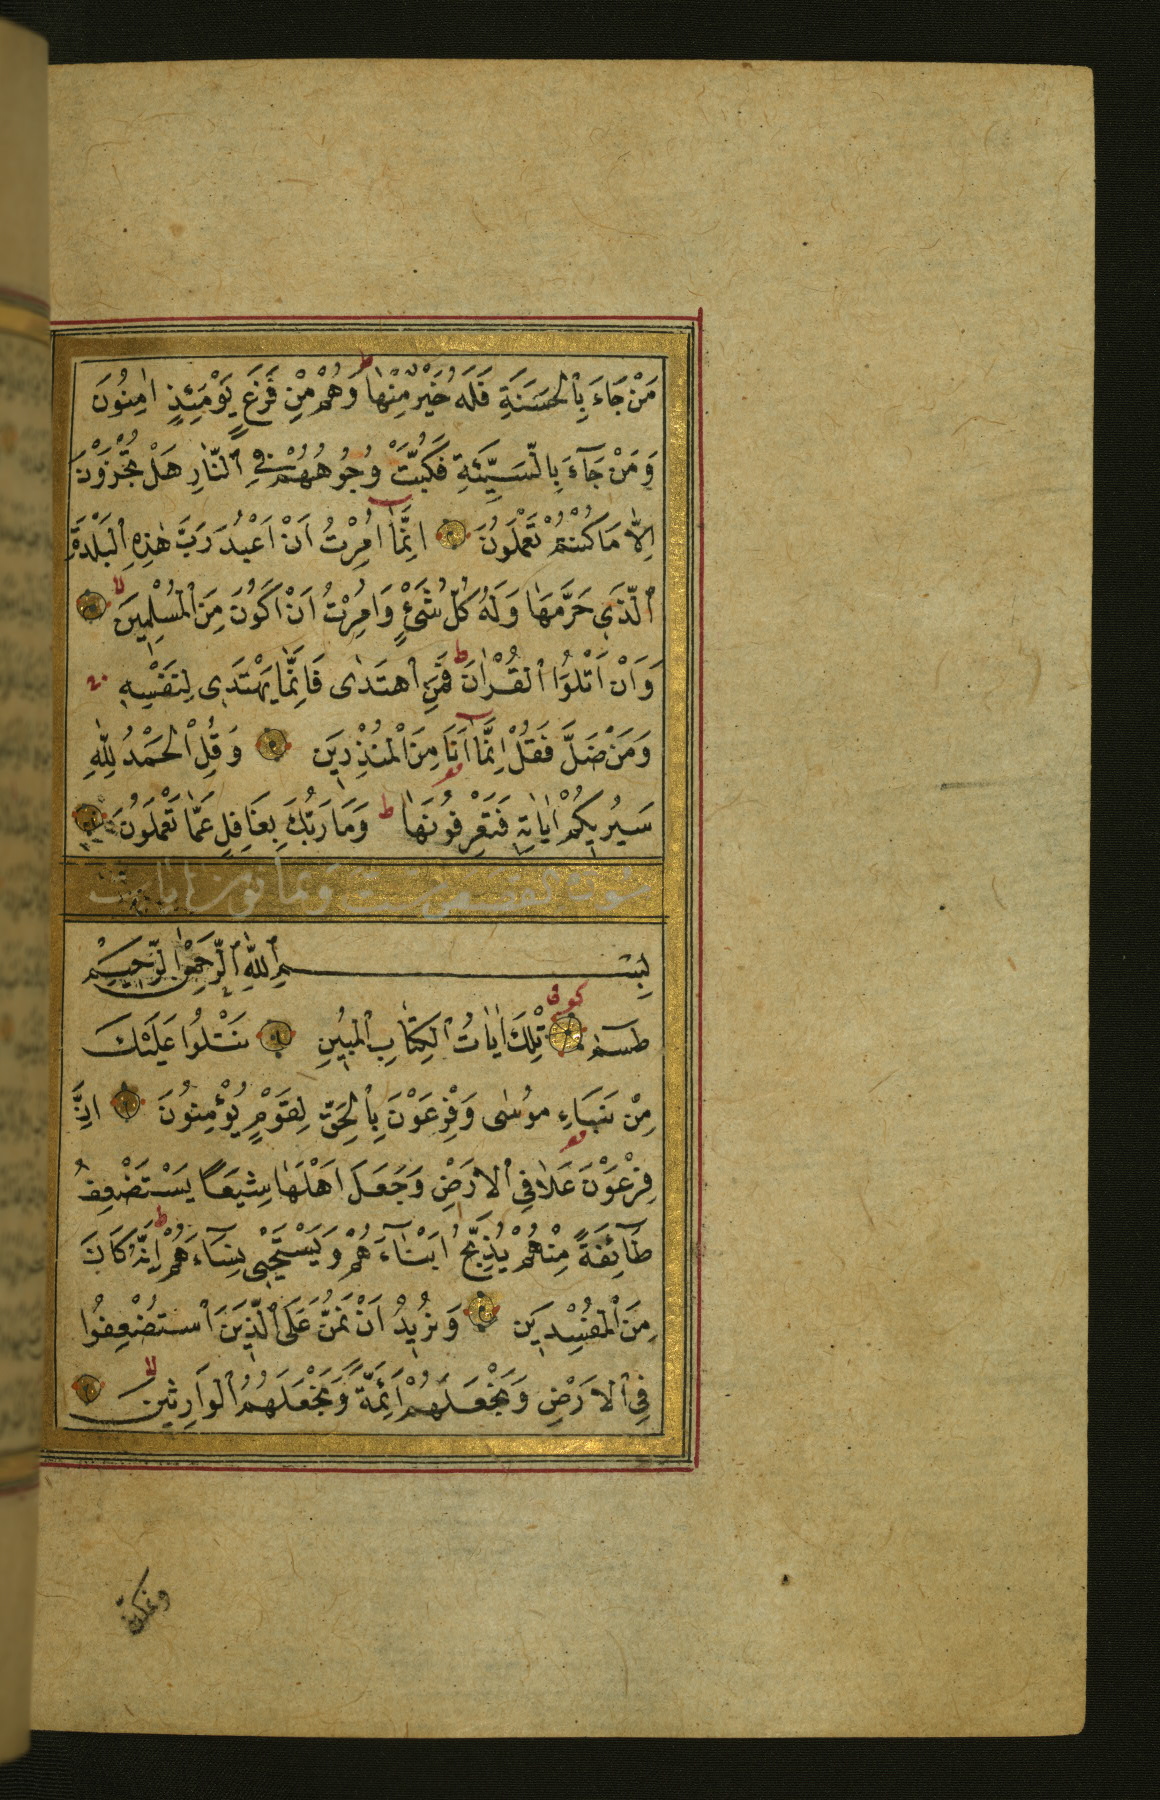 مَنْ جَاءَ بِالْحَسَنَةِ فَلَهُ خَيْرٌ مِنْهَا ط وَهُمْ مِنْ فَزَعٍ يَوْمَئِذٍ اٰمِنُونَ
وَمَنْ جَآءَ بِالسَّيِّئَةِ فَكُبَّتْ وُجُوهُهُمْ فِي النَّارِ هَلْ تُجْزَوْنَ
اِلَّا مَا كُنْتُمْ تَعْمَلُونَ اِنَّمَا اُمِرْتُ اَنْ اَعْبُدَ رَبَّ هٰذِهِ الْبَلْدَةِ
الَّذِي حَرَّمَهَا وَلَهُ كُلُّ شَيْءٍ وَاُمِرْتُ اَنْ اَكُونَ مِنَ الْمُسْلِمِينَ لا
وَاَنْ اَتْلُوَا الْقُرْاٰنَ ط فَمَنِ اهْتَدٰى فَاِنَّمَا يَهْتَدِى لِنَفْسِهِ
وَمَنْ ضَلَّ فَقُلْ اِنَّمَا اَنَا مِنَ الْمُنْذِرِينَ وَقُلِ الْحَمْدُ لِلّٰهِ
سَيُرِيكُمْ اٰيَاتِهِ فَتَعْرِفُونَهَا ط وَمَا رَبُّكَ بِغَافِلٍ عَمَّا تَعْمَلُونَ
سورة القصص وثمانون ايات
بِسْمِ اللّٰهِ الرَّحْمٰنِ الرَّحِيمِ
طسٓمٓ كوفى تِلْكَ اٰيَاتُ الْكِتَابِ الْمُبِينِ نَتْلُوا عَلَيْكَ
مِنْ نَبَاءِ مُوسٰى وَفِرْعَوْنَ بِالْحَقِّ لِقَوْمٍ يُؤْمِنُونَ اِنَّ
فِرْعَوْنَ عَلَا فِي الْاَرْضِ وَجَعَلَ اَهْلَهَا شِيَعًا يَسْتَضْعِفُ
طَآئِفَةً مِنْهُمْ يُذَبِّحُ اَبْنَآءَهُمْ وَيَسْتَحْيِى نِسَآءَهُمْ ط اِنَّهُ كَانَ
مِنَ الْمُفْسِدِينَ وَنُرِيدُ اَنْ نَمُنَّ عَلَى الَّذِينَ اسْتُضْعِفُوا
فِي الْاَرْضِ وَنَجْعَلَهُمْ اَئِمَّةً وَنَجْعَلَهُمُ الْوَارِثِينَ لا
ونمكن